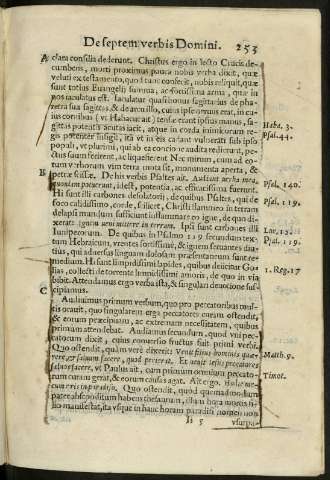 De septem verbis Domini. 253
A clara consilia dederunt. Christus ergo in lecto Crucis de-
cumbens, morti proximus pauca nobis verba dixit, quæ
veluti ex testamento, quod tunc confecit, nobis reliquit, quæ
sunt totius Evangelij summa, ac fortissima arma, quæ in
nos iaculatus est. Iaculatur quasi bonus sagittarius de pha-
retra sua sagittas, & de arcu illo, cuius ipse cornu erat, in cu-
ius cornibus (vt Habacuc ait) tensæ erant ipsius manus, sa-
gittas potentis acutas iacit, atque in corda inimicorum re-
gis potenter infigit, ità vt in eis cadant vulnerati sub ipso
populi, vt plurimi, qui ab ea concio redierunt, pe-
ctus suum ferirent, ac liquescerent. Nec mirum, cum ad eo-
rum verborum vim terra mota sit, monumenta aperta, &
B petræ scissæ. De his verbis Psaltes ait. Audient verba mea,
quoniam potuerunt, idest, potentia, ac efficacissima fuerunt.
Hi sunt illi carbones desolatorij, de quibus Psaltes, qui de
foco calidissimo, corde, scilicet, Christi flammeo in terram
delapsi mundum sufficiunt inflammare eo igne, de quo di-
xerat ignem veni mittere in terram. Ipsi sunt carbones illi
Iuniperorum. De quibus in Psalmo 119 secundum tex-
tum Hebraicum, vrentes fortissimè, & ignem servantes diu-
tius, qui adversus linguam dolosam præsentaneum sunt re-
medium. Hi sunt limpidissimi lapides, quibus deiicitur Go-
lias, collecti de torrente limpidissimi amoris, de quo in via
bibit. Attendamus ergo verba ista, & singulari devotione sus-
C cipiamus.
Audiamus primum verbum, quo pro peccatoribus mul-
tis orauit, quo singularem erga peccatores curam ostendit,
& eorum præcipuam, ac extremam necessitatem, quibus
primum attendebat. Audiamus secundum, quod vni pec-
catori dixit, cuius conversio fructus fuit primi verbi.
Quo ostendit, quàm verè dixerit: Venit filius hominis quæ-
rere, & salvum facere, quod perierat. Et venit Iesus peccatores
salvos facere, vt Paulus ait, cum primum omnium peccato-
rum curam gerat, & eorum causas agat. Ait ergo. Hodie me-
cum eris in paradiso. Quo ostendit, quod quemadmodum
pater absconditum habens thesaurum, illum hora mortis fi-
lio manifestat, ita vsque in hanc horam paradisi nomen non
Ii 5 vsurpa-
Haba. 3.
Psal. 44.
Psal. 140.
Psal. 119.
Luc. 12.
Psal. 119.
1. Reg. 17
Matth. 9.
Timot.